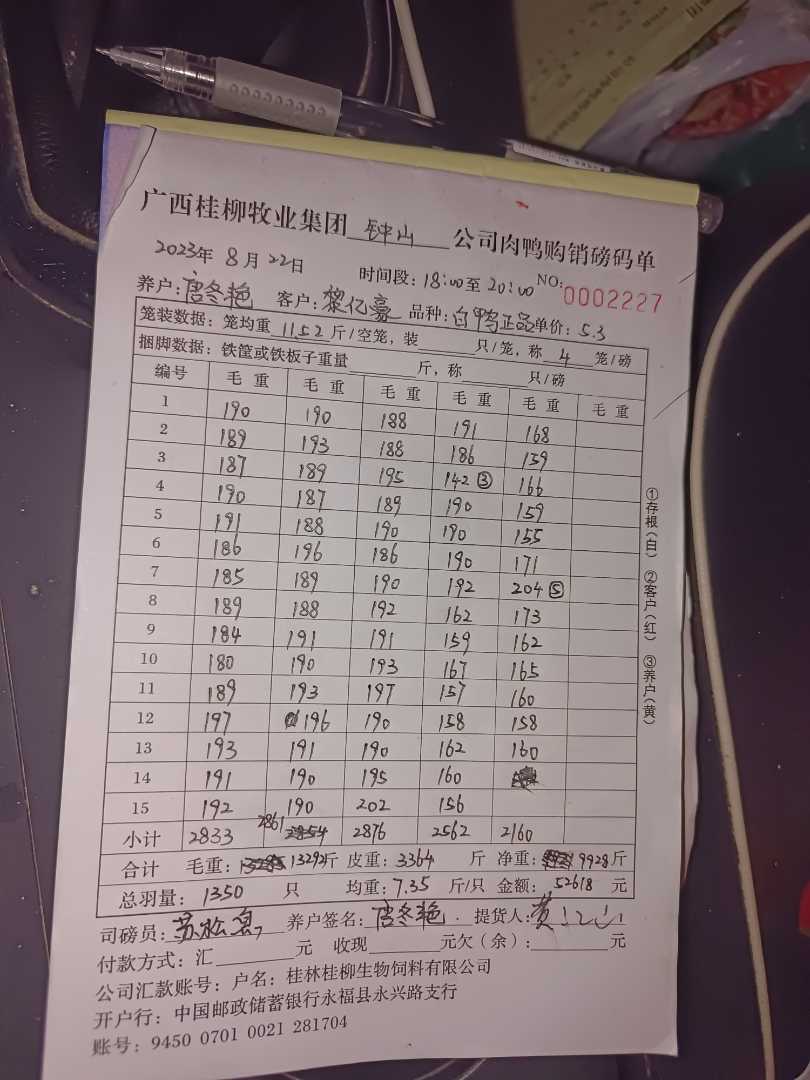 广西桂柳牧业集团 钟山 公司肉鸭购销磅码单
2023年 8月 22日 时间段: 18:00至 20:00 NO: 0002227
养户: 唐冬艳 客户: 黎亿豪 品种: 白鸭正品 单价: 5.3
笼装数据: 笼均重 11.52 斤/空笼, 装 只/笼, 称 4 笼/磅
捆脚数据: 铁筐或铁板子重量 斤, 称 只/磅
编号 毛重 毛重 毛重 毛重 毛重 毛重
1 190 190 188 191 168
2 189 193 188 186 159
3 187 189 195 142 ③ 166
4 190 187 189 190 159
5 191 188 190 190 155
6 186 196 186 190 171
7 185 189 190 192 204 ⑤
8 189 188 192 162 173
9 184 191 191 159 162
10 180 190 193 167 165
11 189 193 197 157 160
12 197 196 190 158 158
13 193 191 190 162 160
14 191 190 195 160
15 192 190 202 156
小计 2833 2861 2876 2562 2160
合计 毛重: 13292斤 皮重: 3364 斤 净重: 9928斤
总羽量: 1350 只 均重: 7.35 斤/只 金额: 52618 元
司磅员: 养户签名: 唐冬艳. 提货人: 黄
付款方式: 汇 元 收现 元欠(余): 元
公司汇款账号: 户名: 桂林桂柳生物饲料有限公司
开户行: 中国邮政储蓄银行永福县永兴路支行
账号: 9450 0701 0021 281704
①存根(白) ②客户(红) ③养户(黄)